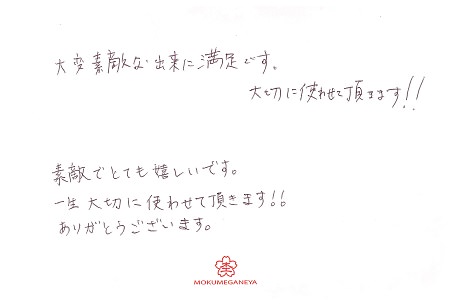 大変素敵な出来に満足です。
大切に使わせて頂きます!!
素敵でとても嬉しいです。
一生大切に使わせて頂きます!!
ありがとうございます。
MOKUMEGANEYA